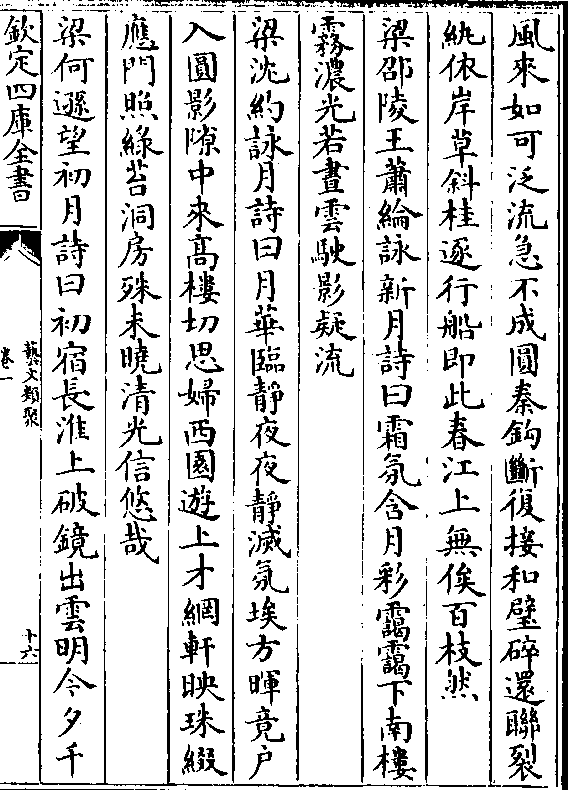 風來如可泛流急不成圓秦鈎斷復接和璧碎還聯裂
紈依岸草斜桂逐行船即此春江上無俟百枝然
梁邵陵王蕭綸詠新月詩曰霜氛含月彩靄靄下南樓
霧濃光若晝雲駛影疑流
梁沈約詠月詩曰月華臨靜夜夜靜滅氛埃方暉竟户
入圓影隙中來髙樓切思婦西園遊上才網軒映珠綴
應門照綠苔洞房殊未曉清光信悠哉
梁何遜望初月詩曰初宿長淮上破鏡出雲明今夕千
欽定四庫全書
藝文類聚
卷一
十六